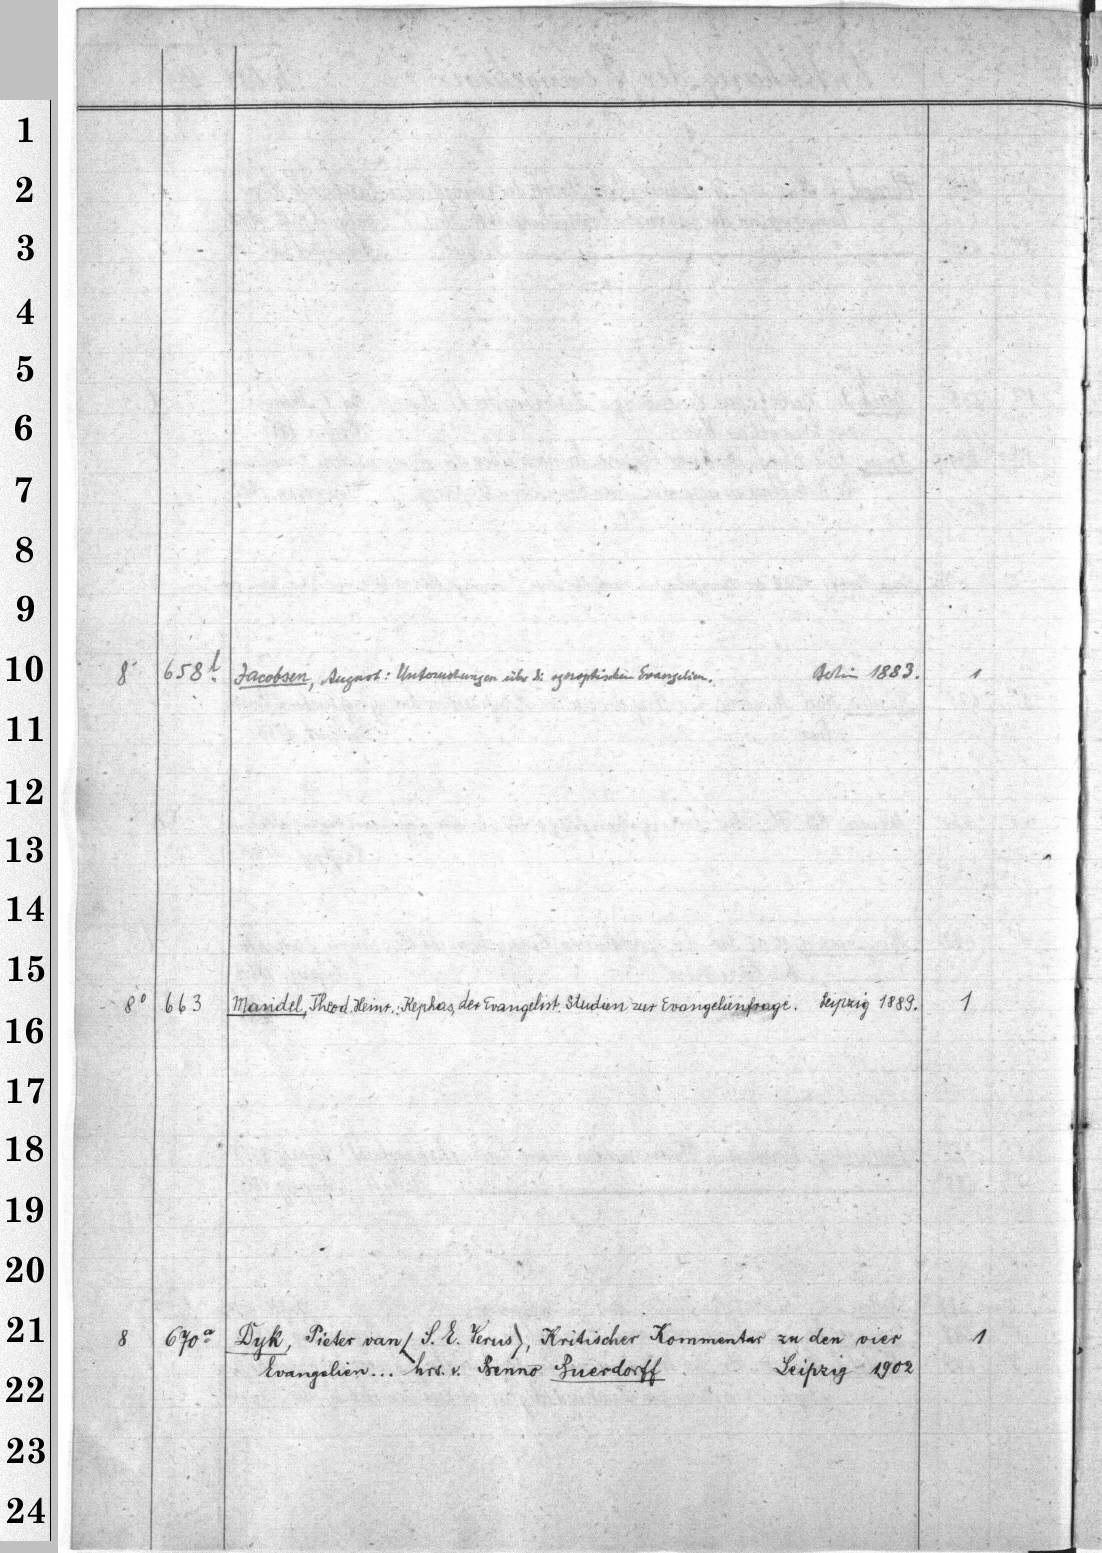 1
2
3
4
5
6
7
8
9
10
8° 658 b. Jacobsen, August: Untersuchungen über die synoptischen Evangelien. Berlin 1883. 1
11
12
13
14
15
8° 663 Mandel, Theod. Heinr.: Kephas, der Evangelist. Studien zur Evangelienfrage. Leipzig 1889. 1
16
17
18
19
20
21
8 670 a Dyk, Pieter van (S. E. Verus), Kritischer Kommentar zu den vier 1
22
Evangelien... hrs. v. Benno Buerdorff Leipzig 1902
23
24